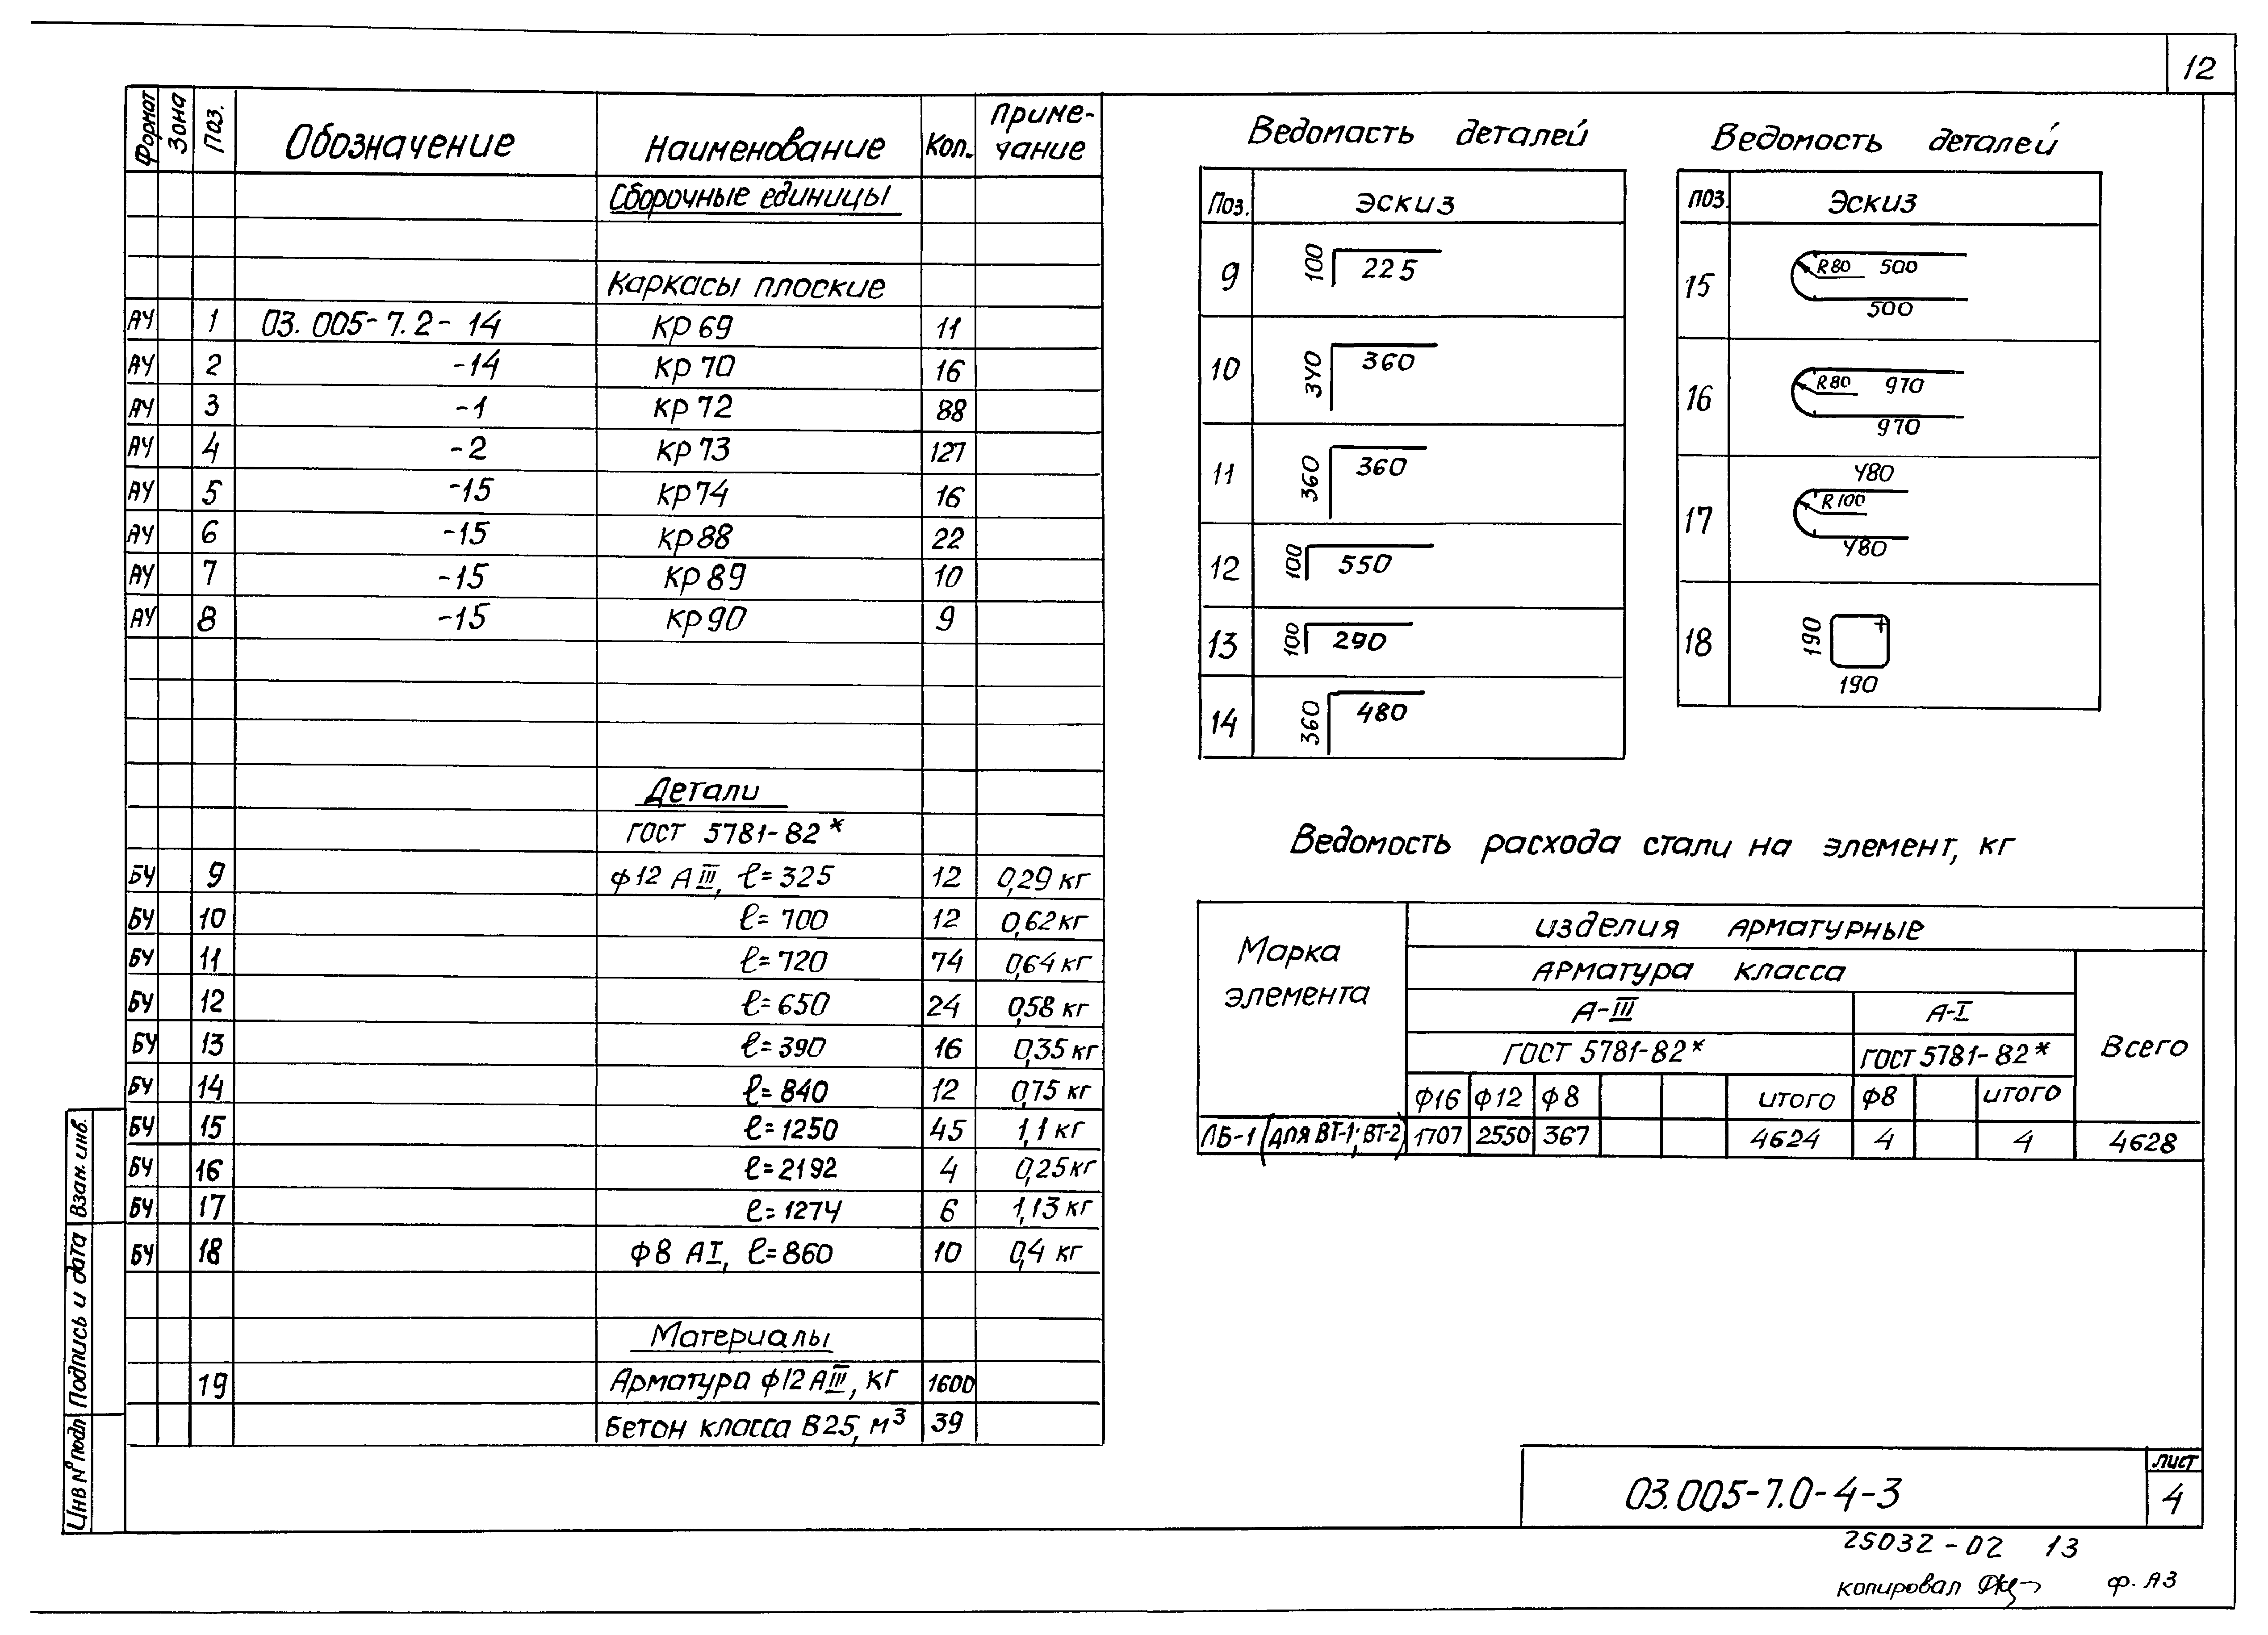 12
Формат Зона Поз. Обозначение Наименование Кол. Приме-чание
Сборочные единицы
Каркасы плоские
АЧ 1 03.005-7.2-14 КР69 11
АЧ 2 -14 КР70 16
АЧ 3 -1 КР72 88
АЧ 4 -2 КР73 127
АЧ 5 -15 КР74 16
АЧ 6 -15 КР88 22
АЧ 7 -15 КР89 10
АЧ 8 -15 КР90 9
Детали
ГОСТ 5781-82*
БЧ 9 Ф12 АIII, ℓ=325 12 0,29 кг
БЧ 10 ℓ=700 12 0,62 кг
БЧ 11 ℓ=720 74 0,64 кг
БЧ 12 ℓ=650 24 0,58 кг
БЧ 13 ℓ=390 16 0,35 кг
БЧ 14 ℓ=840 12 0,75 кг
БЧ 15 ℓ=1250 45 1,1 кг
БЧ 16 ℓ=2192 4 0,25 кг
БЧ 17 ℓ=1274 6 1,13 кг
БЧ 18 Ф8 АI, ℓ=860 10 0,4 кг
Материалы
19 Арматура Ф12 АIII, кг 1600
Бетон класса В25, м³ 39
Ведомасть деталей
Поз. Эскиз
9 100 225
10 340 360
11 360 360
12 100 550
13 100 290
14 360 480
Ведомость деталей
Поз. Эскиз
15 R80 500 500
16 R80 970 970
17 480 R100 480
18 190 190
Ведомость расхода стали на элемент, кг
Марка элемента
изделия арматурные
Арматура класса
А-III А-I
ГОСТ 5781-82* ГОСТ 5781-82* Всего
Ф16 Ф12 Ф8 итого Ф8 итого
ЛБ-1 (для ВТ-1; ВТ-2) 1707 2550 367 4624 4 4 4628
Инв № подл Подпись и дата Взам. инв.
03.005-7.0-4-3
Лист
4
25032-02 13
копировал ф. А3